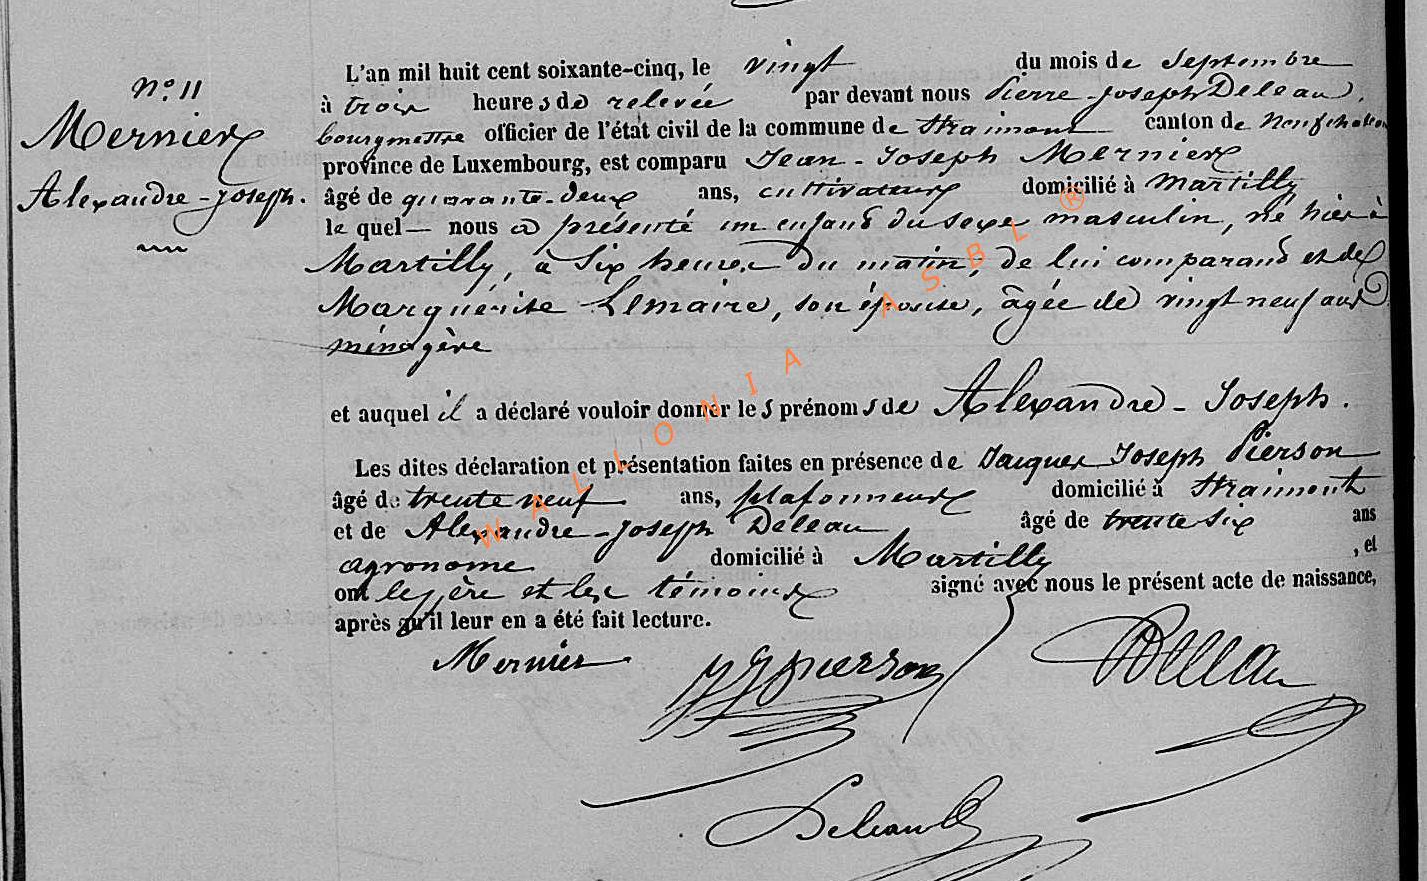 N° 11
Mernier
Alexandre-Joseph.
L'an mil huit cent soixante-cinq, le vingt du mois de Septembre
à trois heures de relevée par devant nous Pierre-Joseph Deleau,
bourgmestre officier de l'état civil de la commune de Straimont canton de Neufchateau
province de Luxembourg, est comparu Jean-Joseph Mernier
âgé de quarante-deux ans, cultivateur domicilié à Martilly
le quel nous a présenté un enfant du sexe masculin, né hier à
Martilly, à Six heures du matin, de lui comparant et de
Marguerite Lemaire, son épouse, âgée de vingt neuf ans
ménagère
et auquel il a déclaré vouloir donner les prénoms de Alexandre-Joseph.
Les dites déclaration et présentation faites en présence de Jacques Joseph Pierson
âgé de trente neuf ans, plafonneur domicilié à Straimont
et de Alexandre-Joseph Deleau âgé de trente six ans
agronome domicilié à Martilly, et
ont le père et les témoins signé avec nous le présent acte de naissance,
après qu'il leur en a été fait lecture.
Mernier JJ pierson Deleau
Deleau
WALLONIA ASBL ®